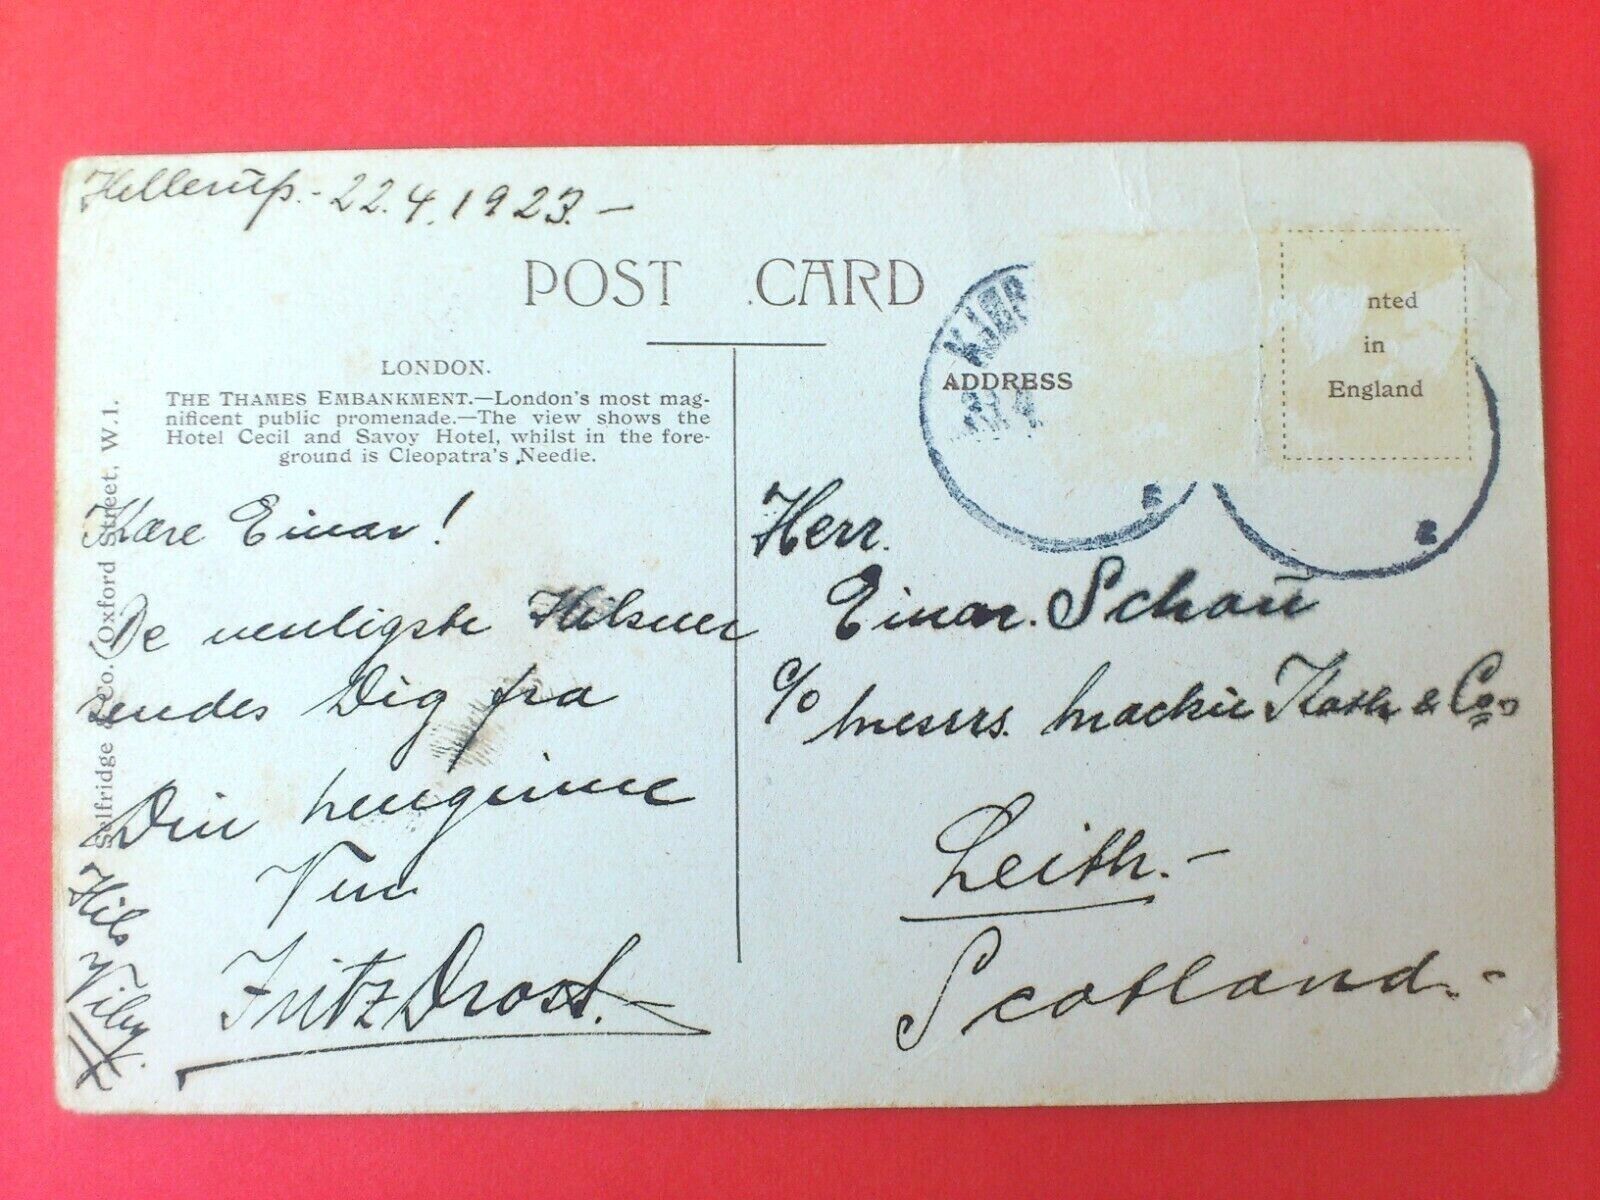 Hellerup. - 22.4.1923. -
POST CARD
LONDON.
THE THAMES EMBANKMENT.—London's most mag-
nificent public promenade.—The view shows the
Hotel Cecil and Savoy Hotel, whilst in the fore-
ground is Cleopatra's Needle.
Selfridge & Co. (Oxford Street, W.1.
Kære Einar!
De venligste Hilsner
sendes Dig fra
Din hengivne
Ven
Fritz Drost. -
Hils
Viby.
KJØB
ADDRESS
nted
in
England
2
Herr.
Einar. Schou
c/o Messrs. Mackie & Co.
Leith. -
Scotland. -